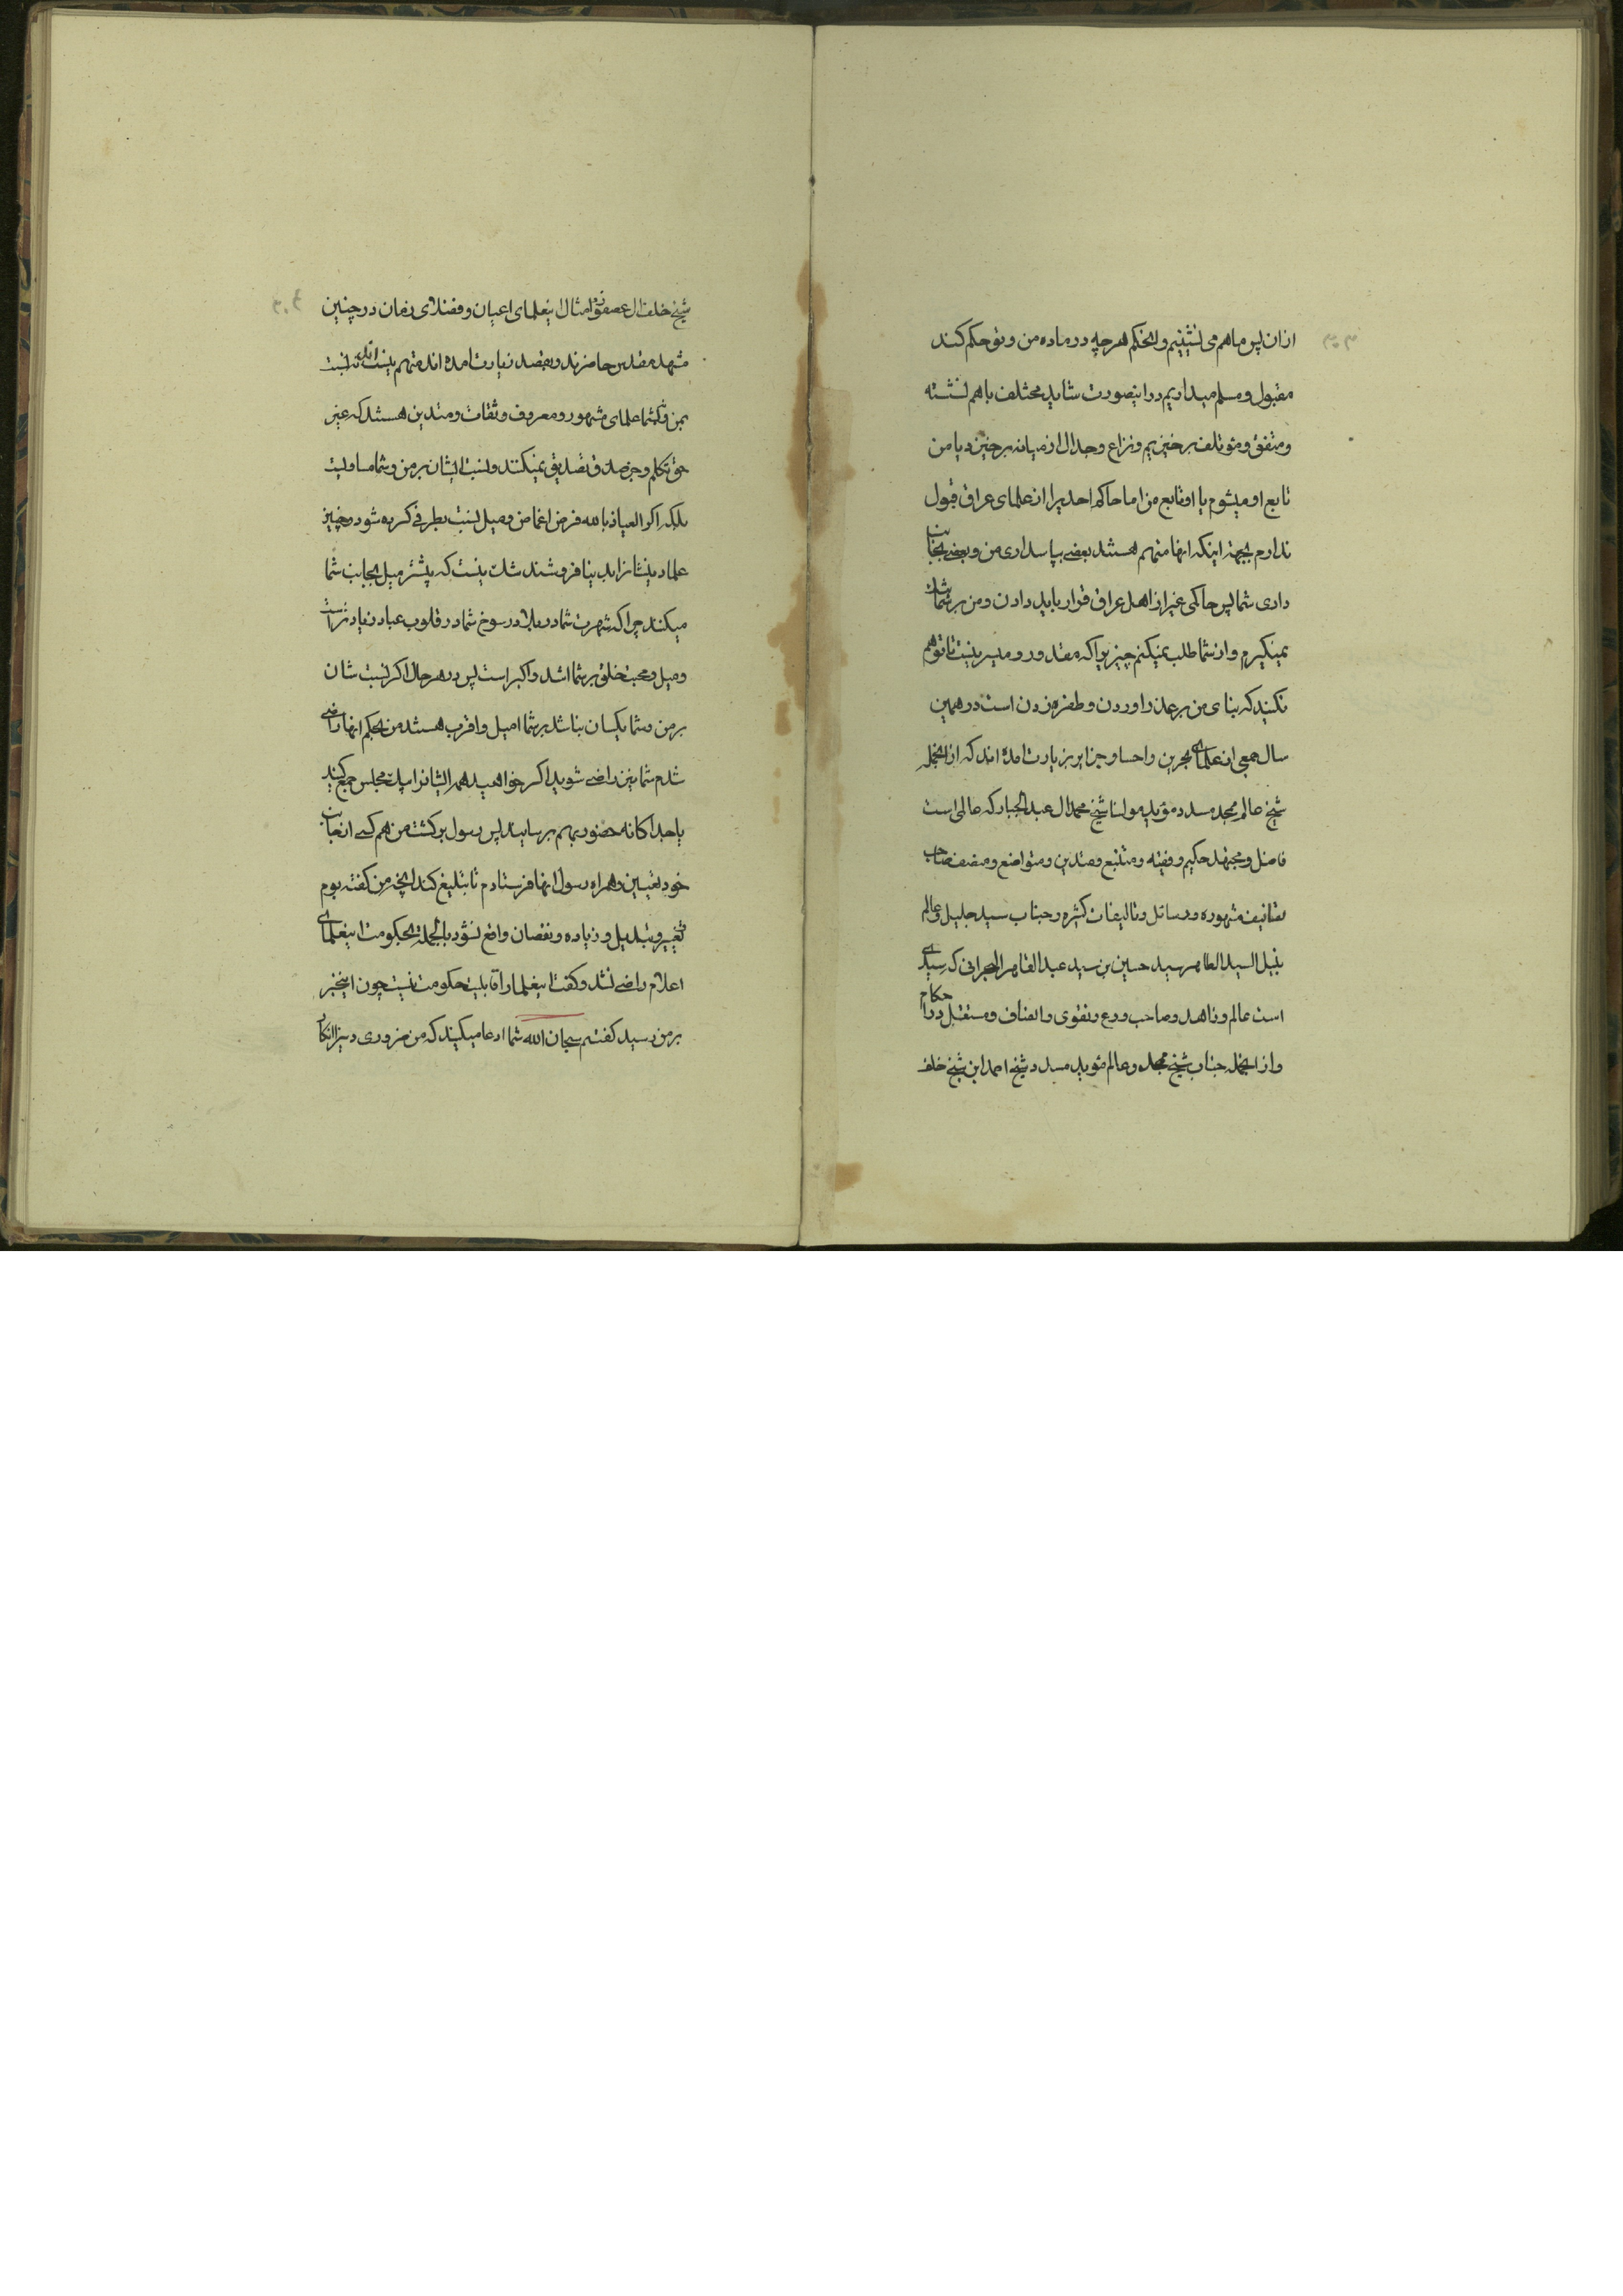 ازان پس ما هم می نشینیم و انحکم هرچه در ماده من و تو حکم کند
مقبول و مسلم میداریم در اینصورت شاید مختلف باهم نشسته
و متفق و مؤتلف برخیزیم و نزاع و جدال از میانه برخیزد یا من
تابع او میشوم یا او تابع من اما حاکم احدیرا از علمای عراق قبول
ندارم بجهة اینکه انها متهم هستند بعضی بپاسداری من و بعضی بجانب
داری شما پس حاکمی غیر از اهل عراق قرار باید دادن و من بر شما تنک
نمیگیرم و از شما طلب نمیکنم چیزیرا که مقدور و میسر نیست تا توهم
نکنید که بنای من بر عذر اوردن و طفره زدن است در همین
سال جمعی از علمای بحرین و احسا و جزایر بزیارت امده اند که از انجمله
شیخ عالم ممجد مسدد مؤید مولینا شیخ محمد ال عبد الجبار که عالمی است
فاضل و مجتهد حکیم و فقیه و متتبع و متدین و متواضع و منصف صاحب
تصانیف مشهوره و رسائل و تالیفات کثیره و جناب سید جلیل و عالم
نبیل السید الطاهر سید حسین بن سید عبد القاهر البحرانی که سیدی
است عالم و زاهد و صاحب ورع و تقوی و انصاف و مستقل در احکام
و از انجمله جناب شیخ ممجد و عالم مؤید مسدد شیخ احمد ابن شیخ خلف
شیخ خلف ال عصفور و امثال اینعلمای اعیان و فضلای زمان در چنین
مشهد مقدس حاضرند و بقصد زیارت امده اند متهم نیستند نه نسبت
بمن و نه بشما علمای مشهور و معروف و ثقات و متدین هستند که غیر
حق تکلم و جز صدق تصدیق نمیکنند و نسبت ایشان بر من و شما مساویست
بلکه اکر العیاذ بالله فرض اغماض و میل نسبت بطرفی کرده شود و چنین
علما دینشانرا بدنیا فروشند شک نیست که بیشتر میل بجانب شما
میکنند چرا که شهرت شما در بلاد و رسوخ شما در قلوب عباد زیادتر است
و میل و محبت خلق بر شما اشد و اکبر است پس در هر حال اکر نسبت شان
بر من و شما یکسان نباشد بر شما امیل و اقرب هستند من بحکم انها راضی
شدم شما نیز راضی شوید اکر خواهید همه ایشانرا بیک مجلس جمع کنید
یا جداکانه حضور بهم برسانید پس رسول برکشت من هم کسی از جانب
خود تعیین و همراه رسول انها فرستادم تا تبلیغ کند انچه من کفته بودم
تغییر و تبدیل و زیاده و نقصان واقع نشود بالجمله بحکومت اینعلمای
اعلام راضی نشد و کفت اینعلما را قابلیت حکومت نیست چون اینخبر
بر من رسید کفتم سبحان الله شما ادعا میکنید که من ضروری دین را انکار